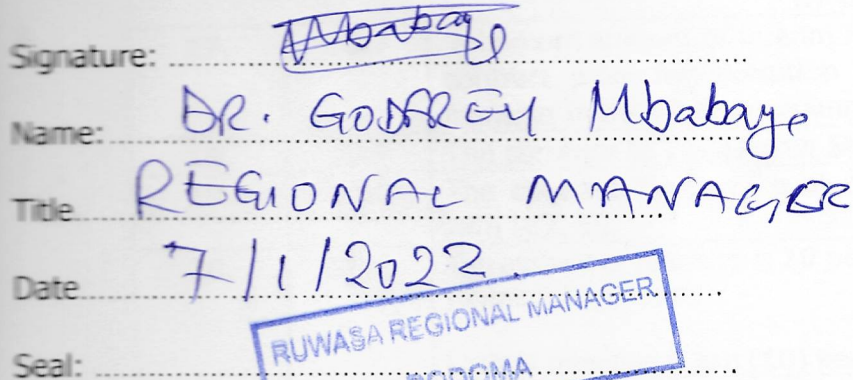 Signature: Mbabaye
Name: DR. GODFREY Mbabaye
Title REGIONAL MANAGER
Date 7/1/2022.
RUWASA REGIONAL MANAGER
Seal:
DODOMA